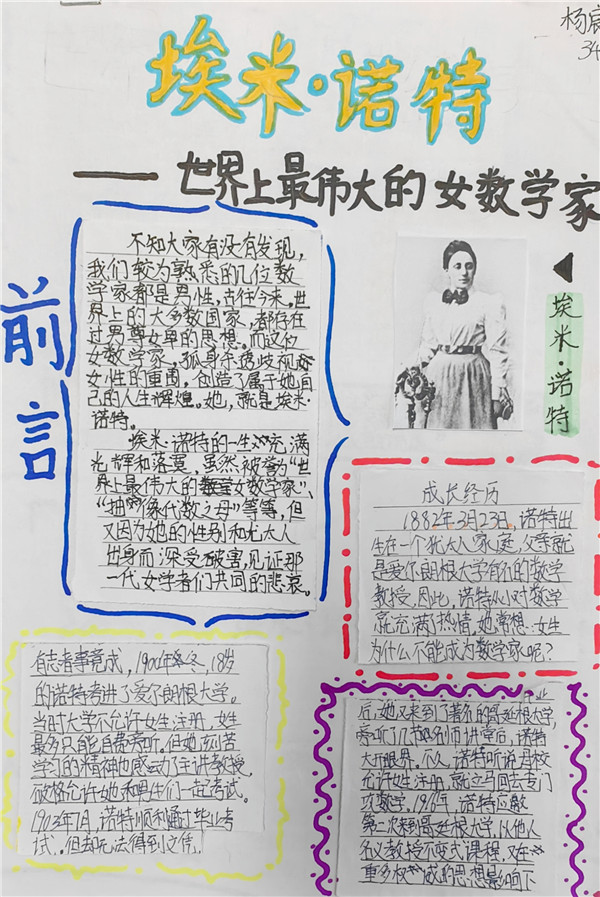 杨宸
34
埃米·诺特
——世界上最伟大的女数学家
前言
不知大家有没有发现,
我们较为熟悉的几位数
学家都是男性,古往今来,世
界上的大多数国家,都存在
过男尊女卑的思想。而这位
女数学家,孤身杀透歧视
女性的重围,创造了属于她自
己的人生辉煌。她,就是埃米·
诺特。
埃米·诺特的一生充满
光辉和落寞,虽然被誉为“世
界上最伟大的女数学家”、
“抽象代数之母”等等,但
又因为她的性别和尤太人
出身而深受破害,见证那
一代女学者们共同的悲哀。
埃米·诺特
成长经历
1882年3月23日,诺特出
生在一个犹太人家庭,父亲就
是爱尔朗根大学有名的数学
教授,因此,诺特从小对数学
就充满了热情,她常想:女生
为什么不能成为数学家呢?
有志者事竟成,1900年冬,18岁
的诺特考进了爱尔朗根大学。
当时大学不允许女生注册,女生
最多只能自费旁听。但她刻苦
学习的精神也感动了主讲教授,
破格允许她和男生们一起考试。
1903年7月,诺特顺利通过毕业考
试,但却无法得到文凭。
毕业
后,她又来到了著名的哥廷根大学,
旁听了几揩名师讲堂后,诺特
大开眼界。不久,诺特听说母校
允许女生注册,就立马回去专门
攻数学。1916年,诺特应邀
第二次来到哥廷根大学,以他人
名义教授不变式课程,又在
重多权威的思想影响下